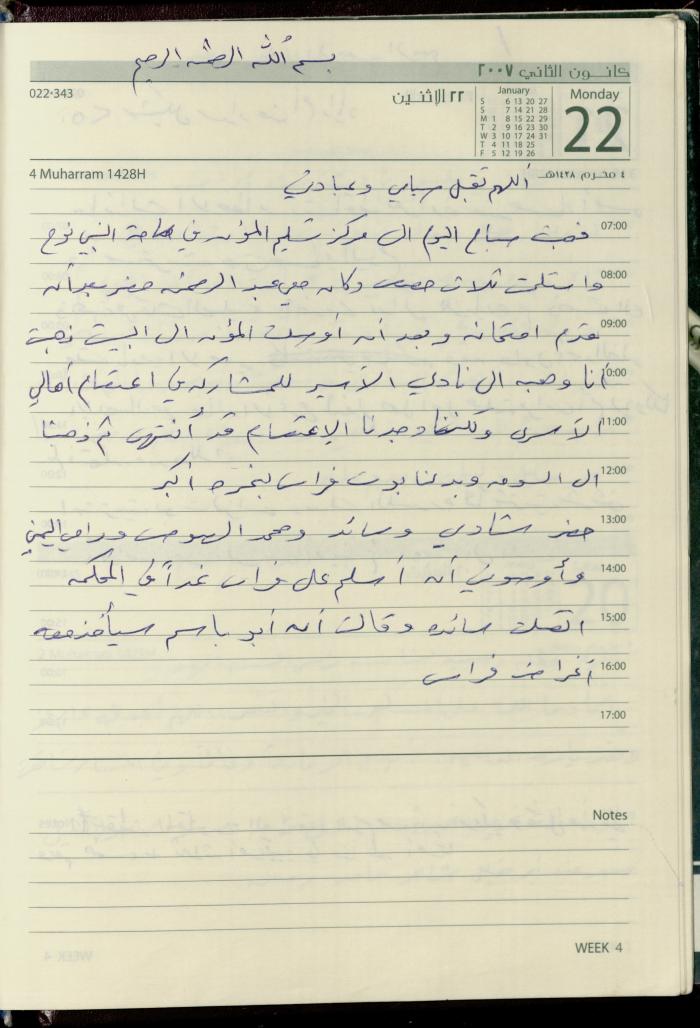 بسم الله الرحمن الرحيم
كانون الثاني ٢٠٠٧
022-343
٢٢ الإثنين
January
S 6 13 20 27
S 7 14 21 28
M 1 8 15 22 29
T 2 9 16 23 30
W 3 10 17 24 31
T 4 11 18 25
F 5 12 19 26
Monday
22
4 Muharram 1428H
٤ محرم ١٤٢٨هـ
اللهم تقبل صيامي وعبادتي
07:00 ذهبت صباح اليوم الى مركز تسليم المؤن في ساحة النبي نوح
08:00 واستلمت ثلاث حصص وكان معي عبد الرحمن حضر بعد أن
09:00 قدم امتحانه وبعد أن أوصلت المؤن الى البيت ذهبت
10:00 أنا وهبه الى نادي الأسير للمشاركة في اعتصام أهالي
11:00 الأسرى ولكننا وجدنا الإعتصام قد أنتهى ثم ذهبنا
12:00 الى السوق وبدلنا بوت فراس بنمرة أكبر
13:00 حضر شادي وسائد ومحمد الهوصي ورامي اليمني
14:00 وأوصوني أن أسلم على فراس غداً في المحكمه
15:00 اتصلت سائده وقالت أن أبو باسم سيأخذ معه
16:00 أغراض فراس
17:00
Notes
WEEK 4